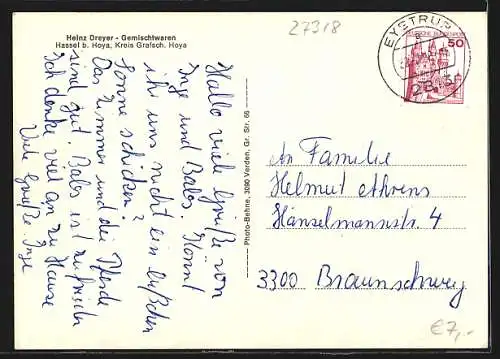 27318
Heinz Dreyer - Gemischtwaren
Hassel b. Hoya, Kreis Grafsch. Hoya
EYSTRUP
DEUTSCHE BUNDESPOST
50
Hallo viele Grüße von
Inge und Babs. Könnt
ihr uns nicht ein bißchen
Sonne schicken?
Das Zimmer und die Pferde
sind gut. Babs ist zufrieden
Ich denke viel an zu Hause
Viele Grüße Inge
Photo-Behne, 3090 Verden, Gr. Str. 66
An Familie
Helmut Ahrens
Hänselmannstr. 4
3300 Braunschweig
€7,-